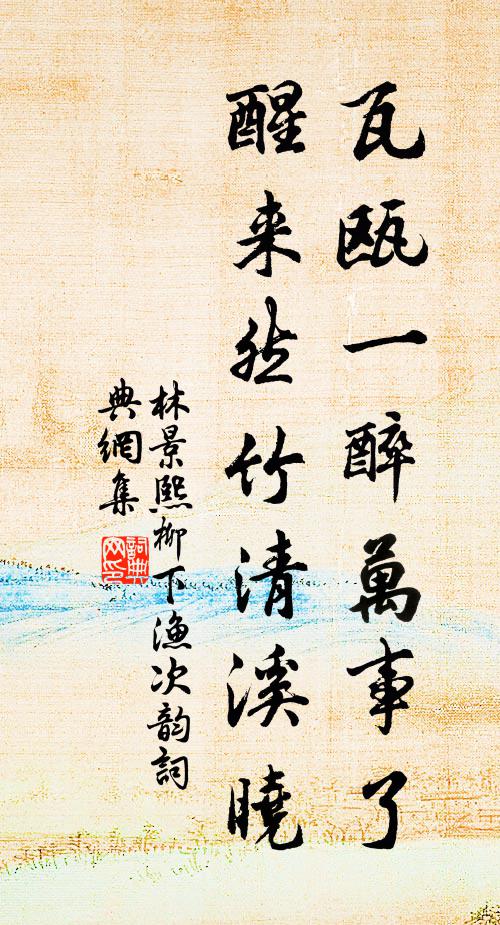 瓦瓯一醉萬事了
醒来然竹清溪曉
林景熙柳下漁次韵詞
典網集
詞典网印